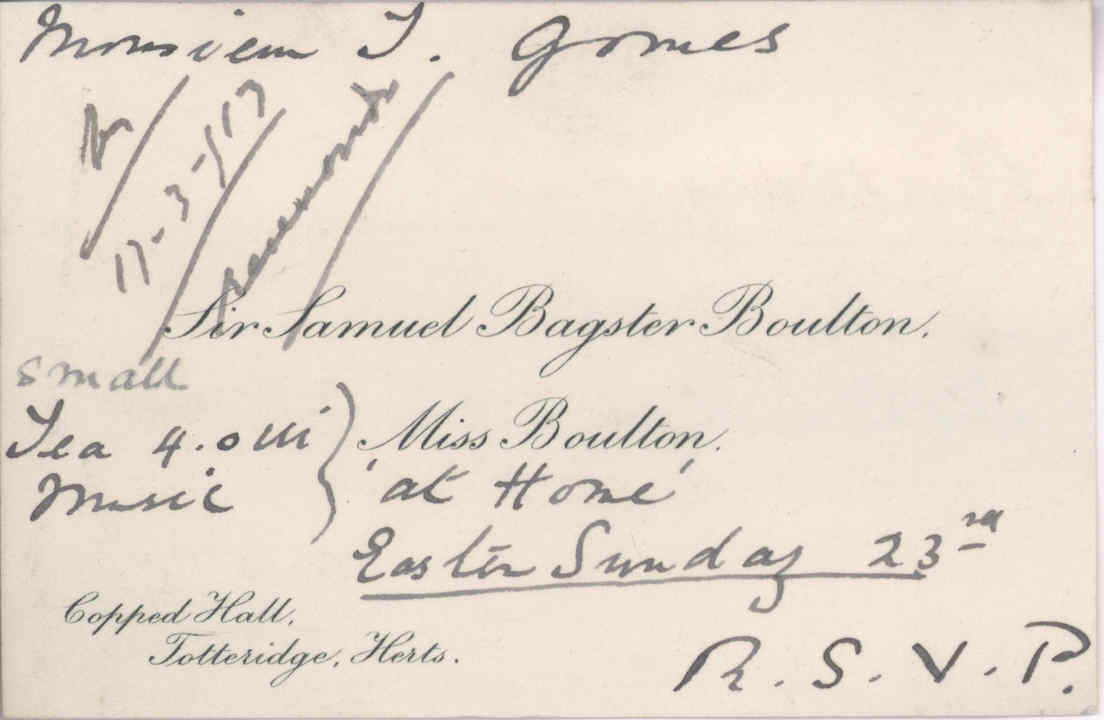 Monsieur J. Gomes
R/
17-3-913/
Sir Samuel Bagster Boulton.
small
Tea 4.0
Music
Miss Boulton.
'at Home'
Easter Sunday 23rd
Copped Hall,
Totteridge, Herts.
R.S.V.P.